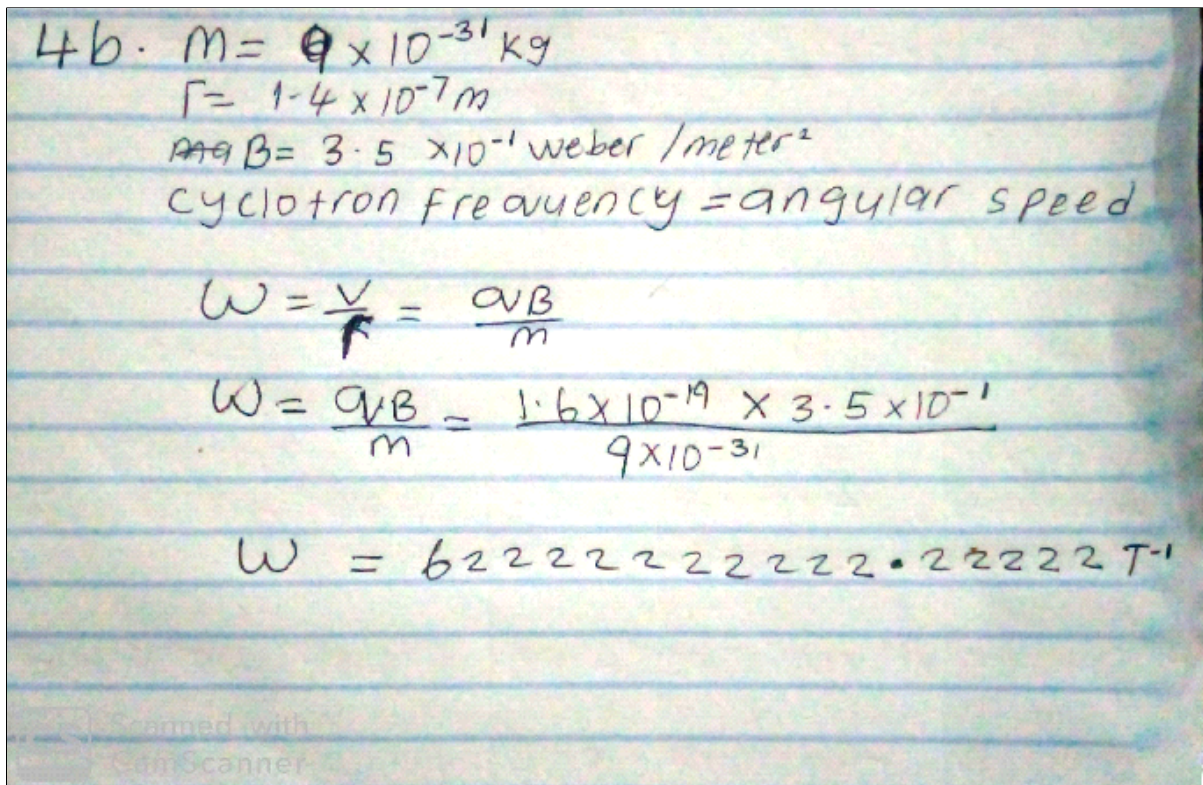 4b. M = 9 x 10-31 kg
r = 1.4 x 10-7 m
B = 3.5 x10-1 weber / meter2
cyclotron frequency = angular speed
W = V/r = qB/m
W = qB/m = 1.6 X 10-19 X 3.5 x10-1 / 9X10-31
W = 62222222222.22222 T-1
Scanned with
CamScanner